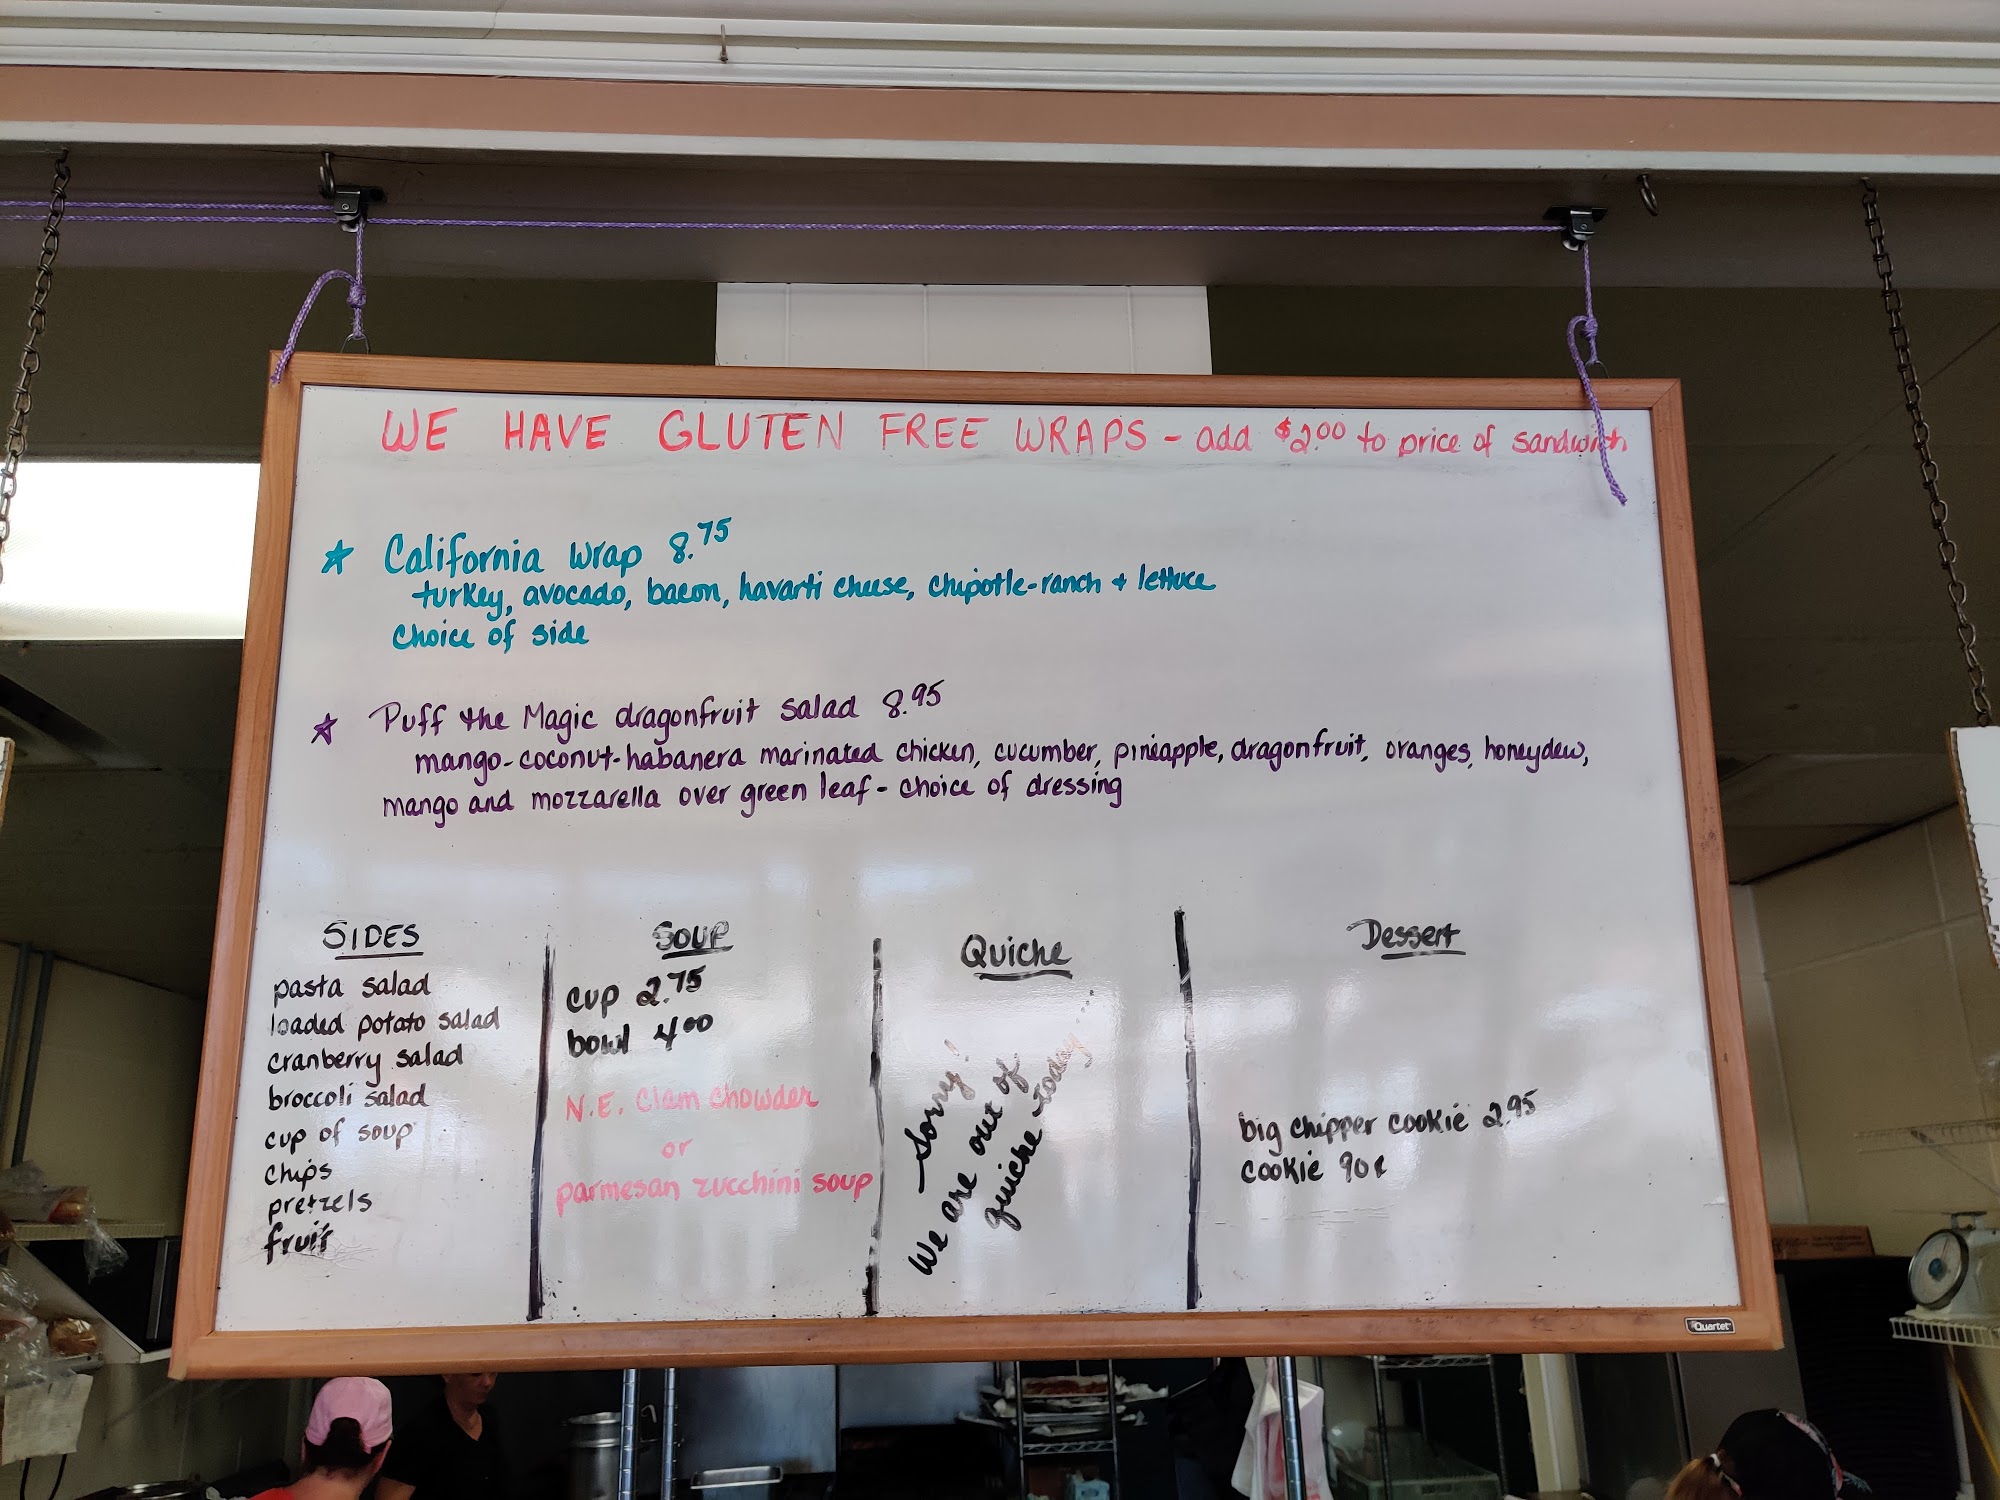 WE HAVE GLUTEN FREE WRAPS - add $2.00 to price of sandwich
California wrap 8.75
turkey, avocado, bacon, havarti cheese, chipotle-ranch + lettuce
Choice of side
Puff the Magic dragonfruit salad 8.95
mango-coconut-habanera marinated chicken, cucumber, pineapple, dragonfruit, oranges, honeydew,
mango and mozzarella over green leaf - choice of dressing
SIDES
pasta salad
loaded potato salad
cranberry salad
broccoli salad
cup of soup
chips
pretzels
fruit
SOUP
cup 2.75
bowl 4.00
N.E. Clam Chowder
or
parmesan zucchini soup
Quiche
Sorry!
We are out of
quiche today....
Dessert
big chipper cookie 2.95
cookie 90¢
Quartet